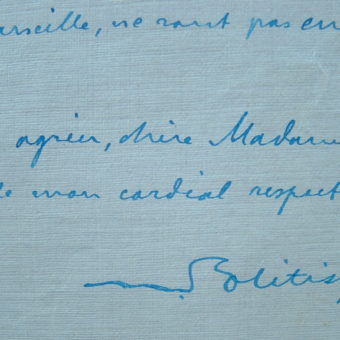 arseille, ne sont pas en
agréer, chère Madame
de mon cordial respect
Politis